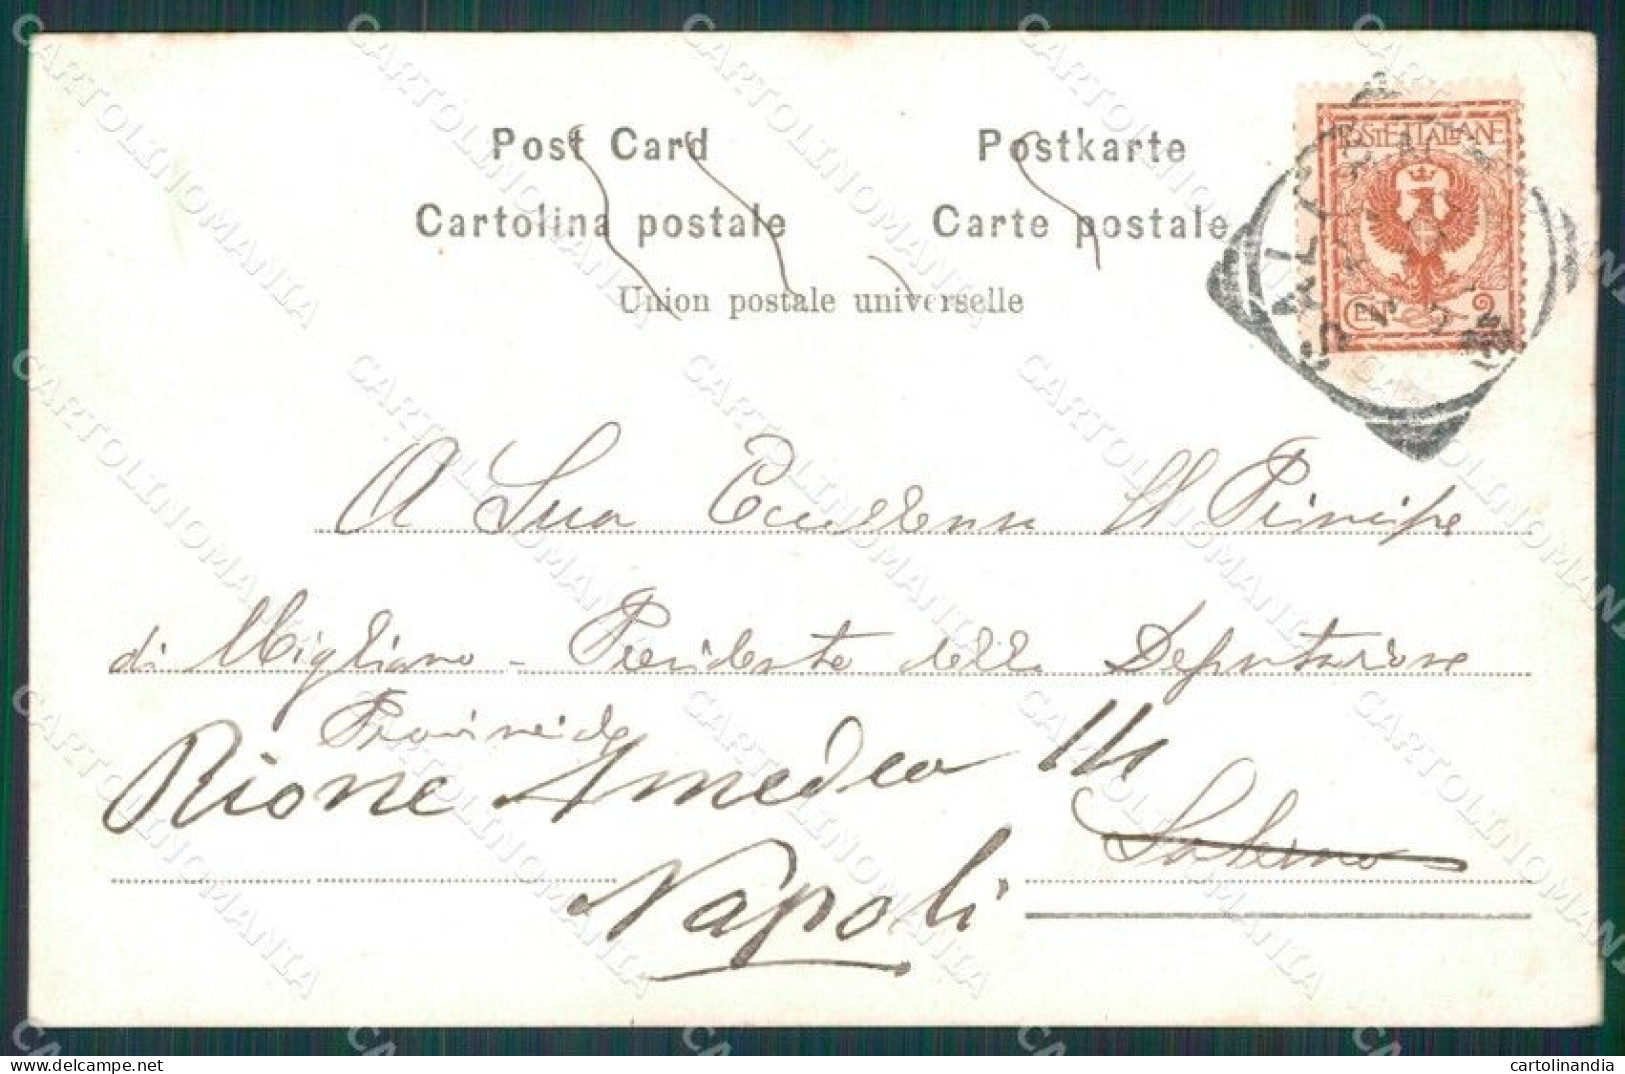 Post Card
Postkarte
Cartolina postale
Carte postale
Union postale universelle
POSTE ITALIANE
CENT 2
A Sua Eccellenza Il Principe
di Migliano - Presidente della Deputazione
Provinciale
Rione Amedeo 114
Salerno
Napoli
CARTOLINOMANIA
cartolinandia